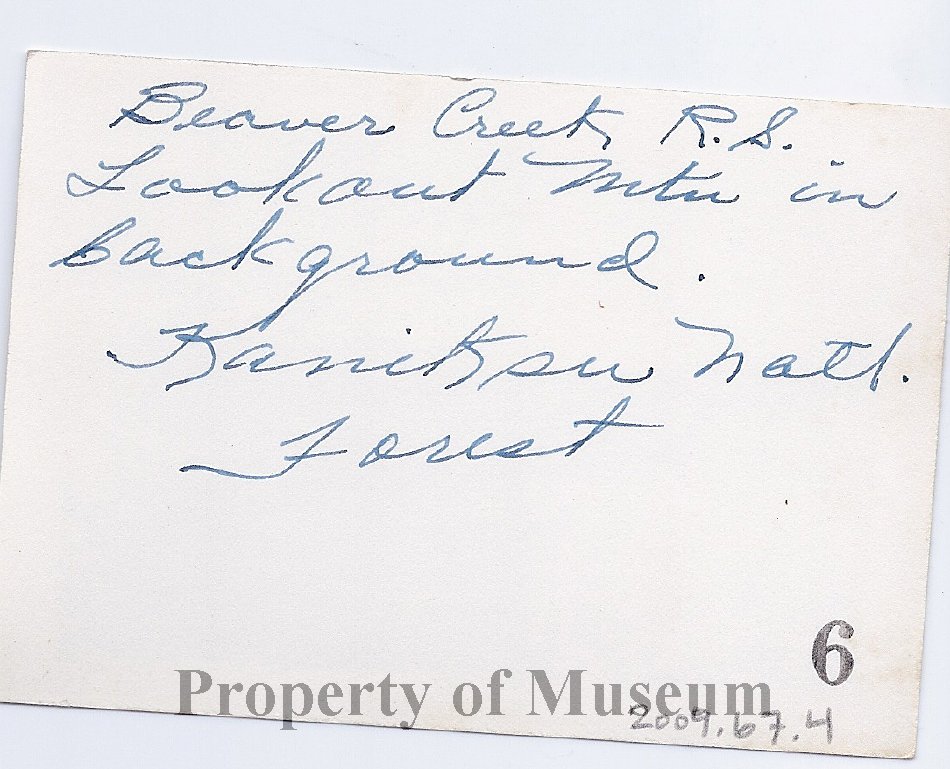 Beaver Creek R.S.
Lookout Mtn in
background.
Kaniksu Natl.
Forest
6
Property of Museum
2009.67.4